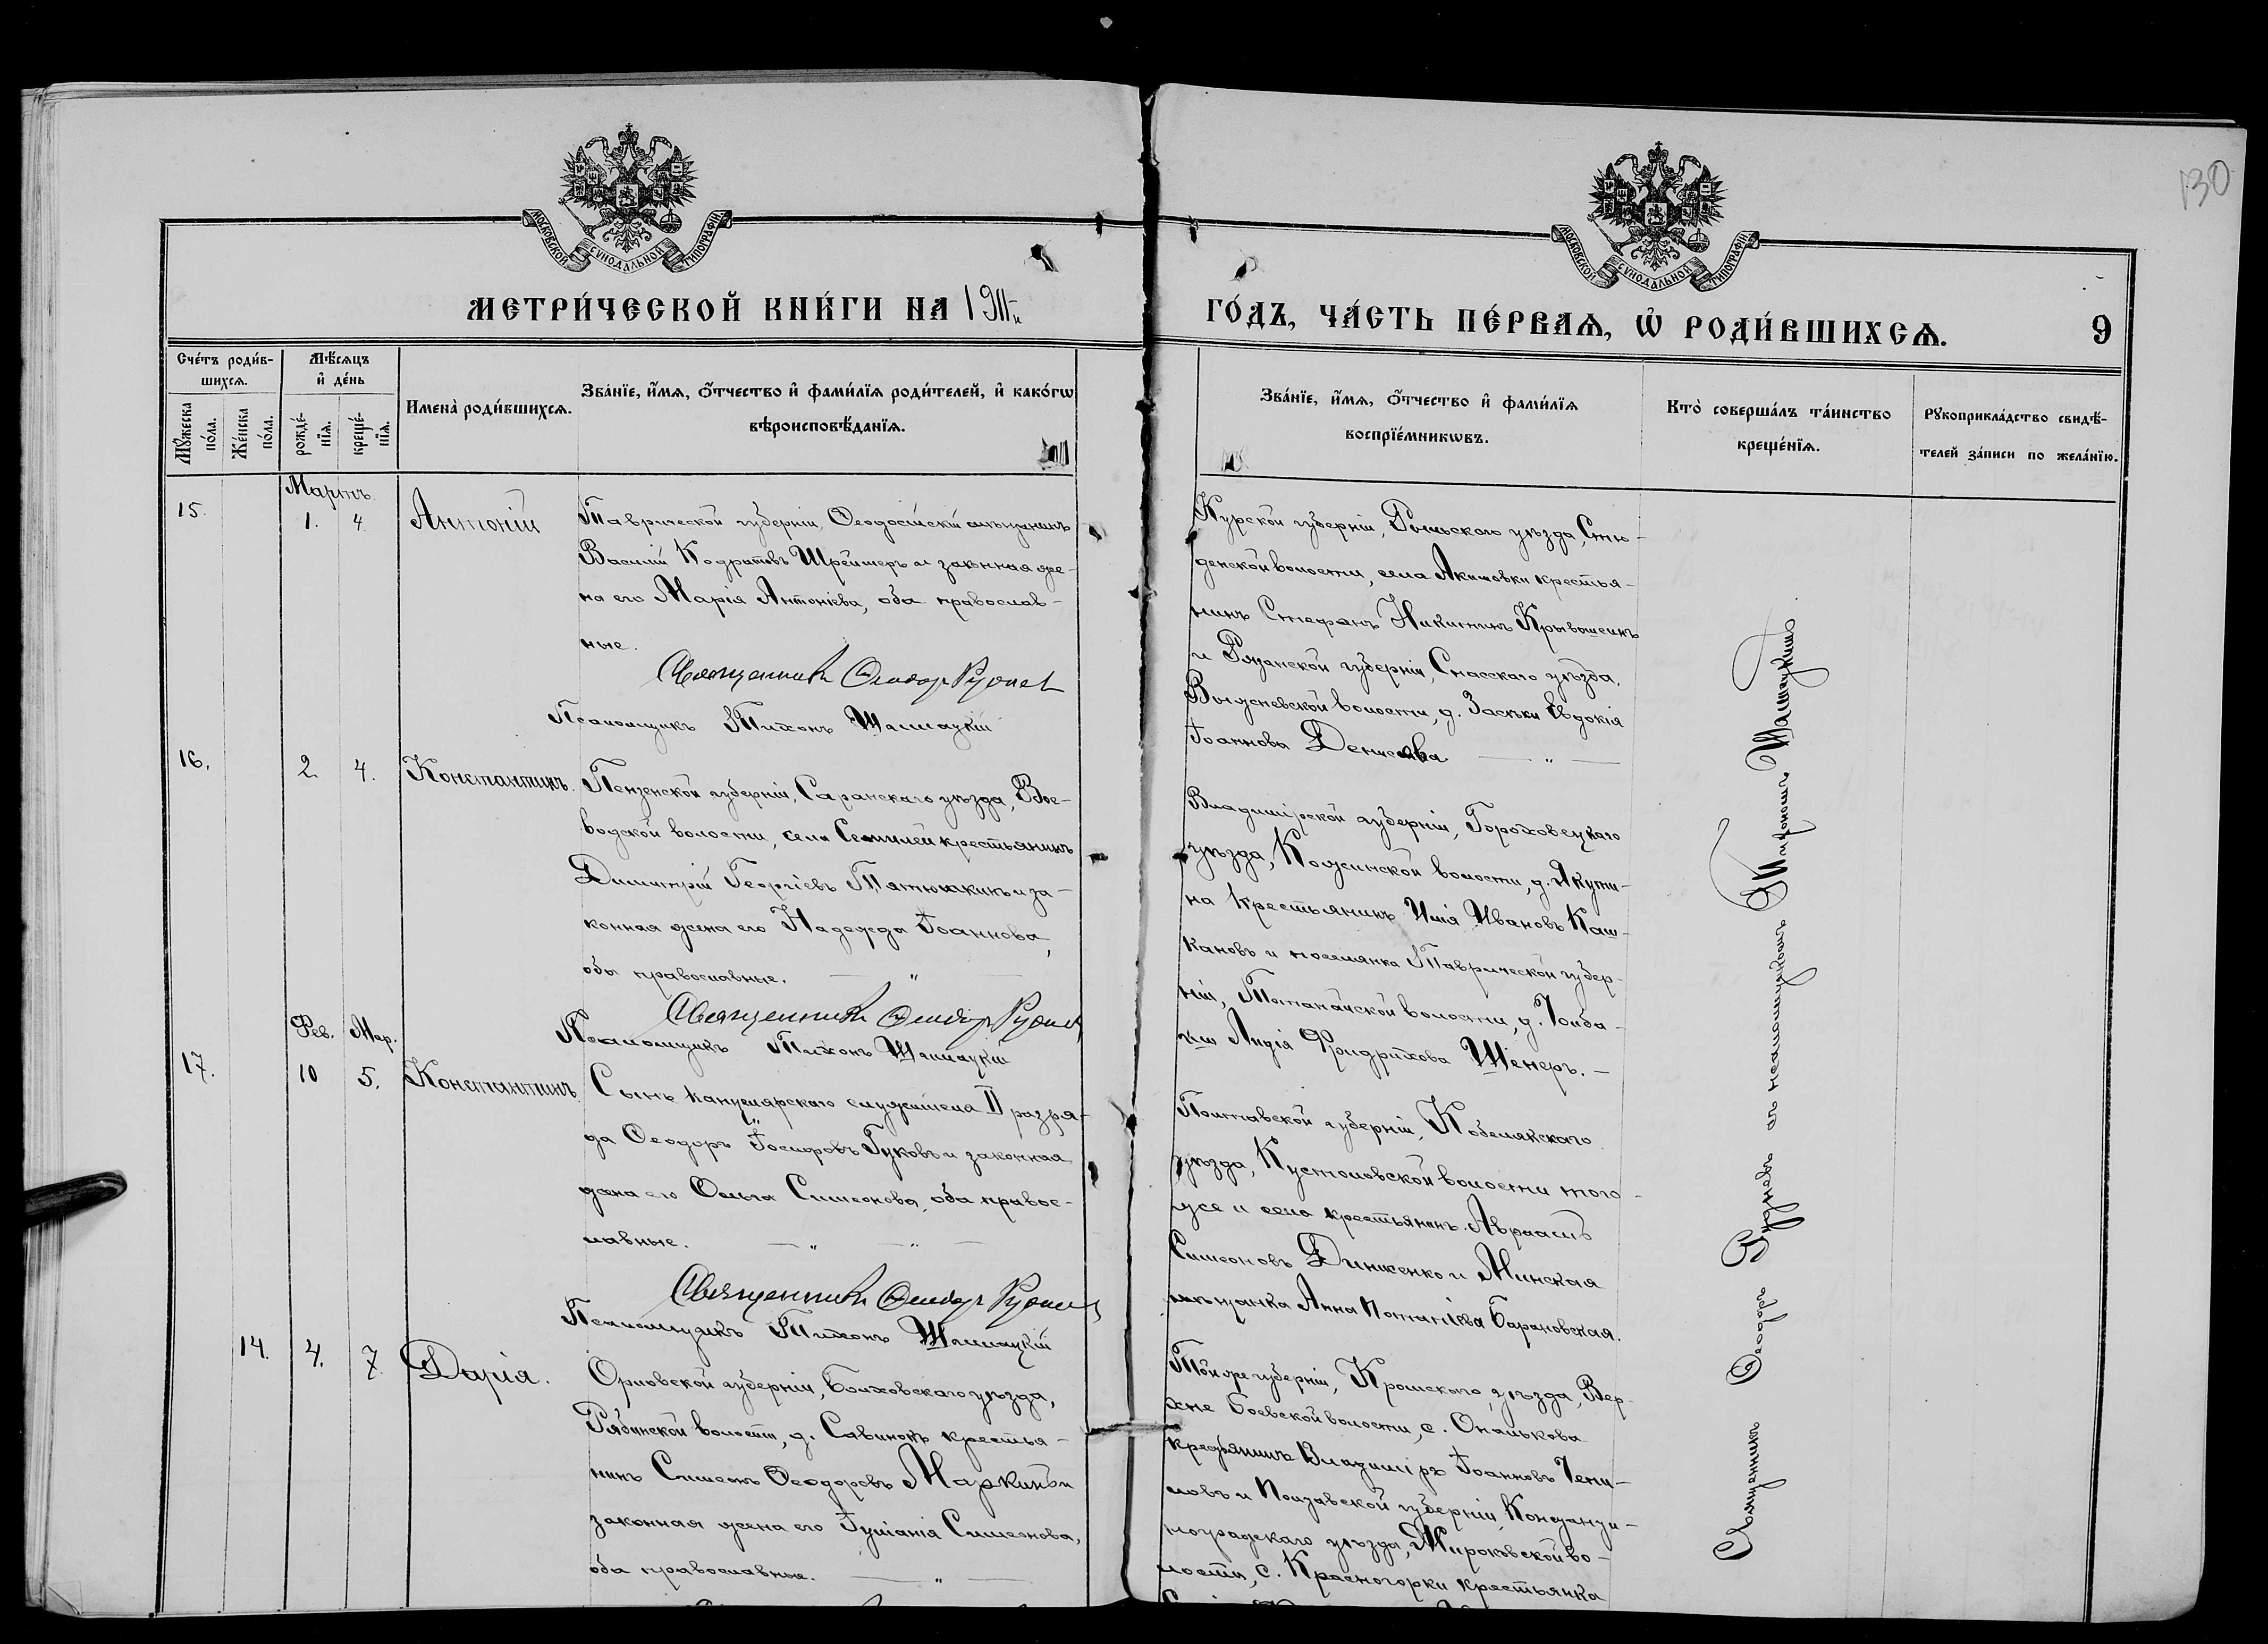 130
МОСКОВСКОЙ СУНОДАЛЬНОЙ ТИПОГРАФІИ
МОСКОВСКОЙ СУНОДАЛЬНОЙ ТИПОГРАФІИ
МЕТРИ́ЧЕСКОЙ КНИ́ГИ НА 1911-й
ГО́ДЪ, ЧА́СТЬ ПЕ́РВАѦ, Ѡ҆ РОДИ́ВШИХСѦ.
9
Сче́тъ роди́в-
шихсѧ.
Мꙋ́жеска
по́ла.
Же́нска
по́ла.
Мѣ́сѧцъ
и҆ де́нь
рожде́-
нїѧ.
креще́-
нїѧ.
Имена̀ роди́вшихсѧ.
Зва́нїе, и҆́мѧ, ѻ҆́тчество и҆ фами́лїѧ роди́телей, и҆ како́гѡ
вѣроисповѣ́данїѧ.
Зва́нїе, и҆́мѧ, ѻ҆́тчество и҆ фами́лїѧ
воспрїе́мникѡвъ.
Кто̀ соверша́лъ та́инство
креще́нїѧ.
Рꙋкоприкла́дство свидѣ́-
телей за́писи по жела́нїю.
Мартъ
15.
1. 4.
Антоній
Таврической губерніи, Ѳеодосійскій мѣщанинъ
Василій Кодратовъ Шрейтеръ и законная же-
на его Марія Антоніева, оба православ-
ные.
Священникъ Ѳеодоръ Руднев
Псаломщикъ Тихонъ
Курской губерніи, Рыльского уѣзда, Сту-
денской волости, села Акимовки крестья-
нинъ Стефанъ Никитинъ Крывошеинъ
и Рязанской губерніи, Спасскаго уѣзда,
волости, д. Засѣки Евдокія
Іоаннова Денисова — „ —
16.
2. 4.
Константинъ.
Пензенской губерніи, Саранскаго уѣзда, Вое-
водской волости, села Семилей крестьянинъ
Димитрій Георгіевъ Пятюшкинъ и за-
конная жена его Надежда Іоаннова,
оба православные. — „ —
Священникъ Ѳеодоръ Руднев
Псаломщикъ Тихонъ
Владимірской губерніи, Гороховецкаго
уѣзда, Кожинской волости, д. Якути-
на крестьянинъ Илія Ивановъ Каш-
кановъ и поселянка Таврической губер-
ніи, волости, д.
Лидія Фридрихова Шенеръ. —
Фев. Мар.
17.
10 5.
Константинъ
Сынъ канцелярскаго служителя II разря-
да Ѳеодоръ Іосифовъ Гуковъ и законная
жена его Ольга Симеонова, оба правос-
лавные. — „ — „ —
Священникъ Ѳеодоръ Руднев
Псаломщикъ Тихонъ
Полтавской губерніи, Кобелякскаго
уѣзда, Кустоловской волости того-
же и села крестьянинъ Авраамъ
Симеоновъ Динженко и Минская
мѣщанка Анна Барановская.
14.
4. 7.
Дарія.
Орловской губерніи, Болховскаго уѣзда,
Рябинской волости, д. крестья-
нинъ Симеонъ Ѳеодоровъ Маркинъ и
законная жена его Іуліанія Симеонова,
оба православные. — „ —
Той же губерніи, Кромскаго уѣзда, Вер-
хне Боевской волости, с.
крестьянинъ Владиміръ Іоанновъ
и Полтавской губерніи, Константи-
ноградскаго уѣзда, во-
лости, с. Красногорки крестьянка
Священникъ Ѳеодоръ Рудневъ съ псаломщикомъ Тихономъ